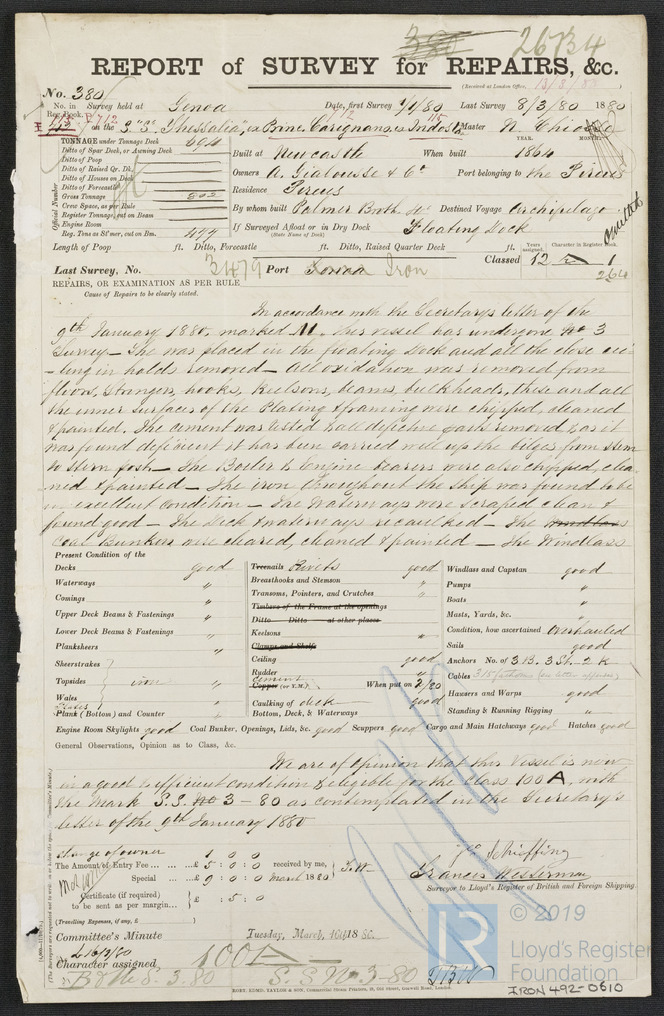 26734
REPORT of SURVEY for REPAIRS, &c.
(Received at London Office,
No. 380
No. in Reg. Book. Survey held at Genoa Date, first Survey Last Survey 8/3/80 1880
on the S.S. "Thessalia", ex Prince Carignano, ex Indos Master N. Chiosse
TONNAGE under Tonnage Deck 694
Ditto of Spar Deck, or Awning Deck
Ditto of Poop
Ditto of Raised Qr. Dk.
Ditto of Houses on Deck
Ditto of Forecastle
Gross Tonnage 802
Crew Space, as per Rule
Register Tonnage, cut on Beam
Engine Room
Reg. Tons as St'mr, cut on Bm. 499
Official Number
YEAR. MONTH.
Built at Newcastle When built 1864
Owners A. Gialousse & Co Port belonging to the Pireus
Residence Pireus
By whom built Palmer Broth. & Co Destined Voyage Archipelago
If Surveyed Afloat or in Dry Dock Floating Dock
(State Name of Dock)
Length of Poop ft. Ditto, Forecastle ft. Ditto, Raised Quarter Deck ft.
Years assigned. Character in Register Book.
Classed 12 1
264
Last Survey, No. 3479 Port Genoa Iron
REPAIRS, OR EXAMINATION AS PER RULE
Cause of Repairs to be clearly stated.
In accordance with the Secretary's letter of the
9th January 1880, marked M, this vessel has undergone No 3
Survey – She was placed in the floating Dock and all the close cei-
-ling in holds removed – all oxidation was removed from
floors, Stringers, hooks, Keelsons, beams, bulkheads, these and all
the inner surfaces of the plating & framing were chipped, cleaned
& painted. The cement was tested & all defective parts removed & as it
was found deficient it has been carried well up the bilges from stem
to stern post – The Boiler & Engine bearers were also chipped, clea-
ned & painted – The iron throughout the ship was found to be
in excellent condition – The Waterways were scraped clean &
found good – The Deck & waterways recaulked – The windlass
Coal Bunkers were cleared, cleaned & painted – The Windlass
Present Condition of the
Decks good
Waterways "
Comings "
Upper Deck Beams & Fastenings "
Lower Deck Beams & Fastenings "
Planksheers "
Sheerstrakes
Topsides iron "
Wales
Plates
Plank (Bottom) and Counter "
Treenails Rivets good
Breasthooks and Stemson "
Transoms, Pointers, and Crutches "
Timbers of the Frame at the openings
Ditto Ditto at other places
Keelsons "
Clamps and Shelfs
Ceiling good
Rudder "
cement
Copper (or Y.M.) When put on 2/80
Caulking of deck good
Bottom, Deck, & Waterways "
Windlass and Capstan good
Pumps "
Boats "
Masts, Yards, &c. "
Condition, how ascertained overhauled
Sails good
Anchors No. of 3 B. 3 St. 2 K
Cables 315 fathoms
Hawsers and Warps good
Standing & Running Rigging "
Engine Room Skylights good Coal Bunker, Openings, Lids, &c. good Scuppers good Cargo and Main Hatchways good Hatches good
General Observations, Opinion as to Class, &c.
We are of opinion that this vessel is now
in a good & efficient condition & eligible for the class 100 A, with
the mark S.S. No 3 – 80 as contemplated in the Secretary's
letter of the 9th January 1880
Change of owner 1 : 0 : 0
The Amount of Entry Fee ... £ 5 : 0 : 0 received by me,
Special ... £ 9 : 0 : 0 March 1880
Certificate (if required) £ : 5 : 0
to be sent as per margin...
(Travelling Expenses, if any, £ )
Schiaffino
Francis Westerman
Surveyor to Lloyd's Register of British and Foreign Shipping.
Committee's Minute Tuesday, March, 16th 1880.
Character assigned 100 A
S.S. No. 3-80
B & M S. 3. 80
ROBT. EDMD. TAYLOR & SON, Commercial Steam Printers, 19, Old Street, Goswell Road, London.
LR
© 2019
Lloyd's Register
Foundation
IRON 492-0610